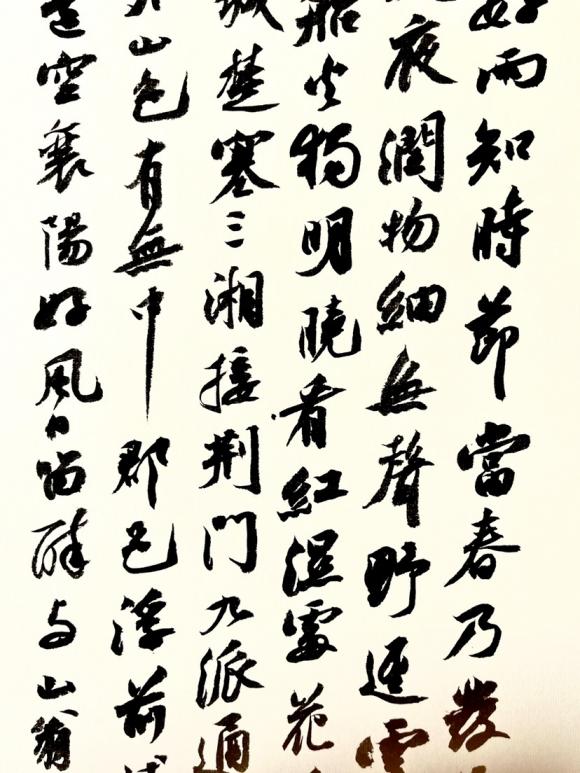 好雨知時節當春乃發
夜潤物細無聲野逕雲
船火獨明曉看紅濕處花
城楚塞三湘接荊門九派通
外山色有無中郡邑浮前
遠空襄陽好風日留醉与山翁